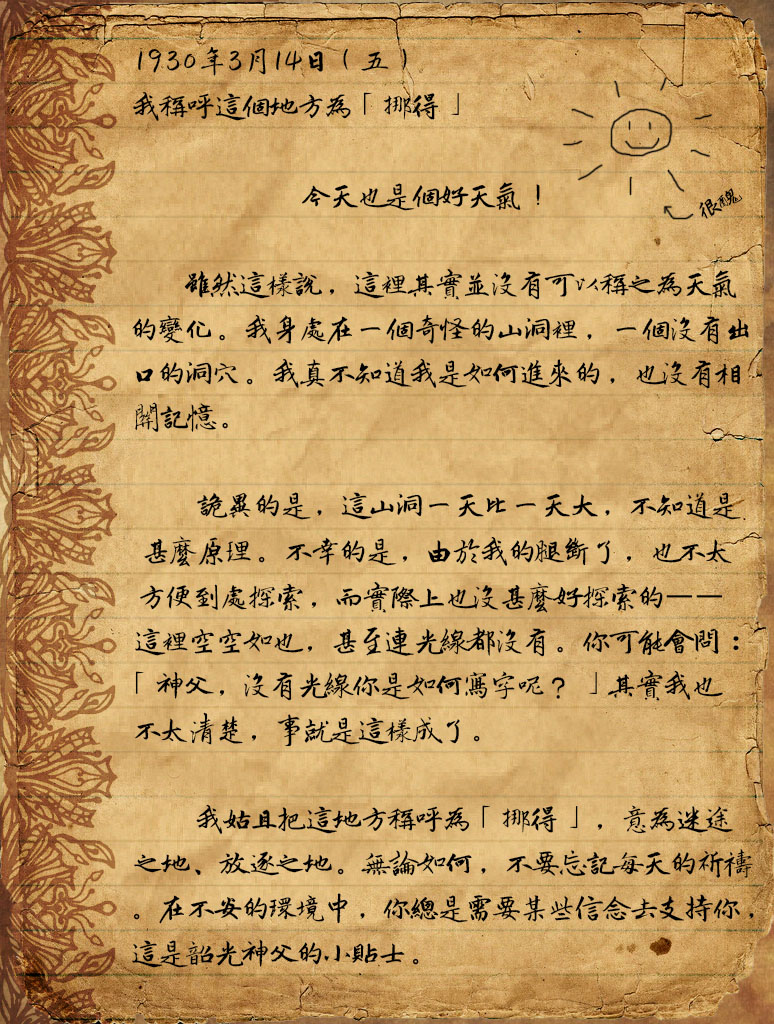 1930年3月14日（五）
我稱呼這個地方為「挪得」
很醜
今天也是個好天氣！
雖然這樣說，這裡其實並沒有可以稱之為天氣
的變化。我身處在一個奇怪的山洞裡，一個沒有出
口的洞穴。我真不知道我是如何進來的，也沒有相
關記憶。
詭異的是，這山洞一天比一天大，不知道是
甚麼原理。不幸的是，由於我的腿斷了，也不太
方便到處探索，而實際上也沒甚麼好探索的——
這裡空空如也，甚至連光線都沒有。你可能會問：
「神父，沒有光線你是如何寫字呢？」其實我也
不太清楚，事就是這樣成了。
我姑且把這地方稱呼為「挪得」，意為迷途
之地、放逐之地。無論如何，不要忘記每天的祈禱
。在不安的環境中，你總是需要某些信念去支持你，
這是韶光神父的小貼士。